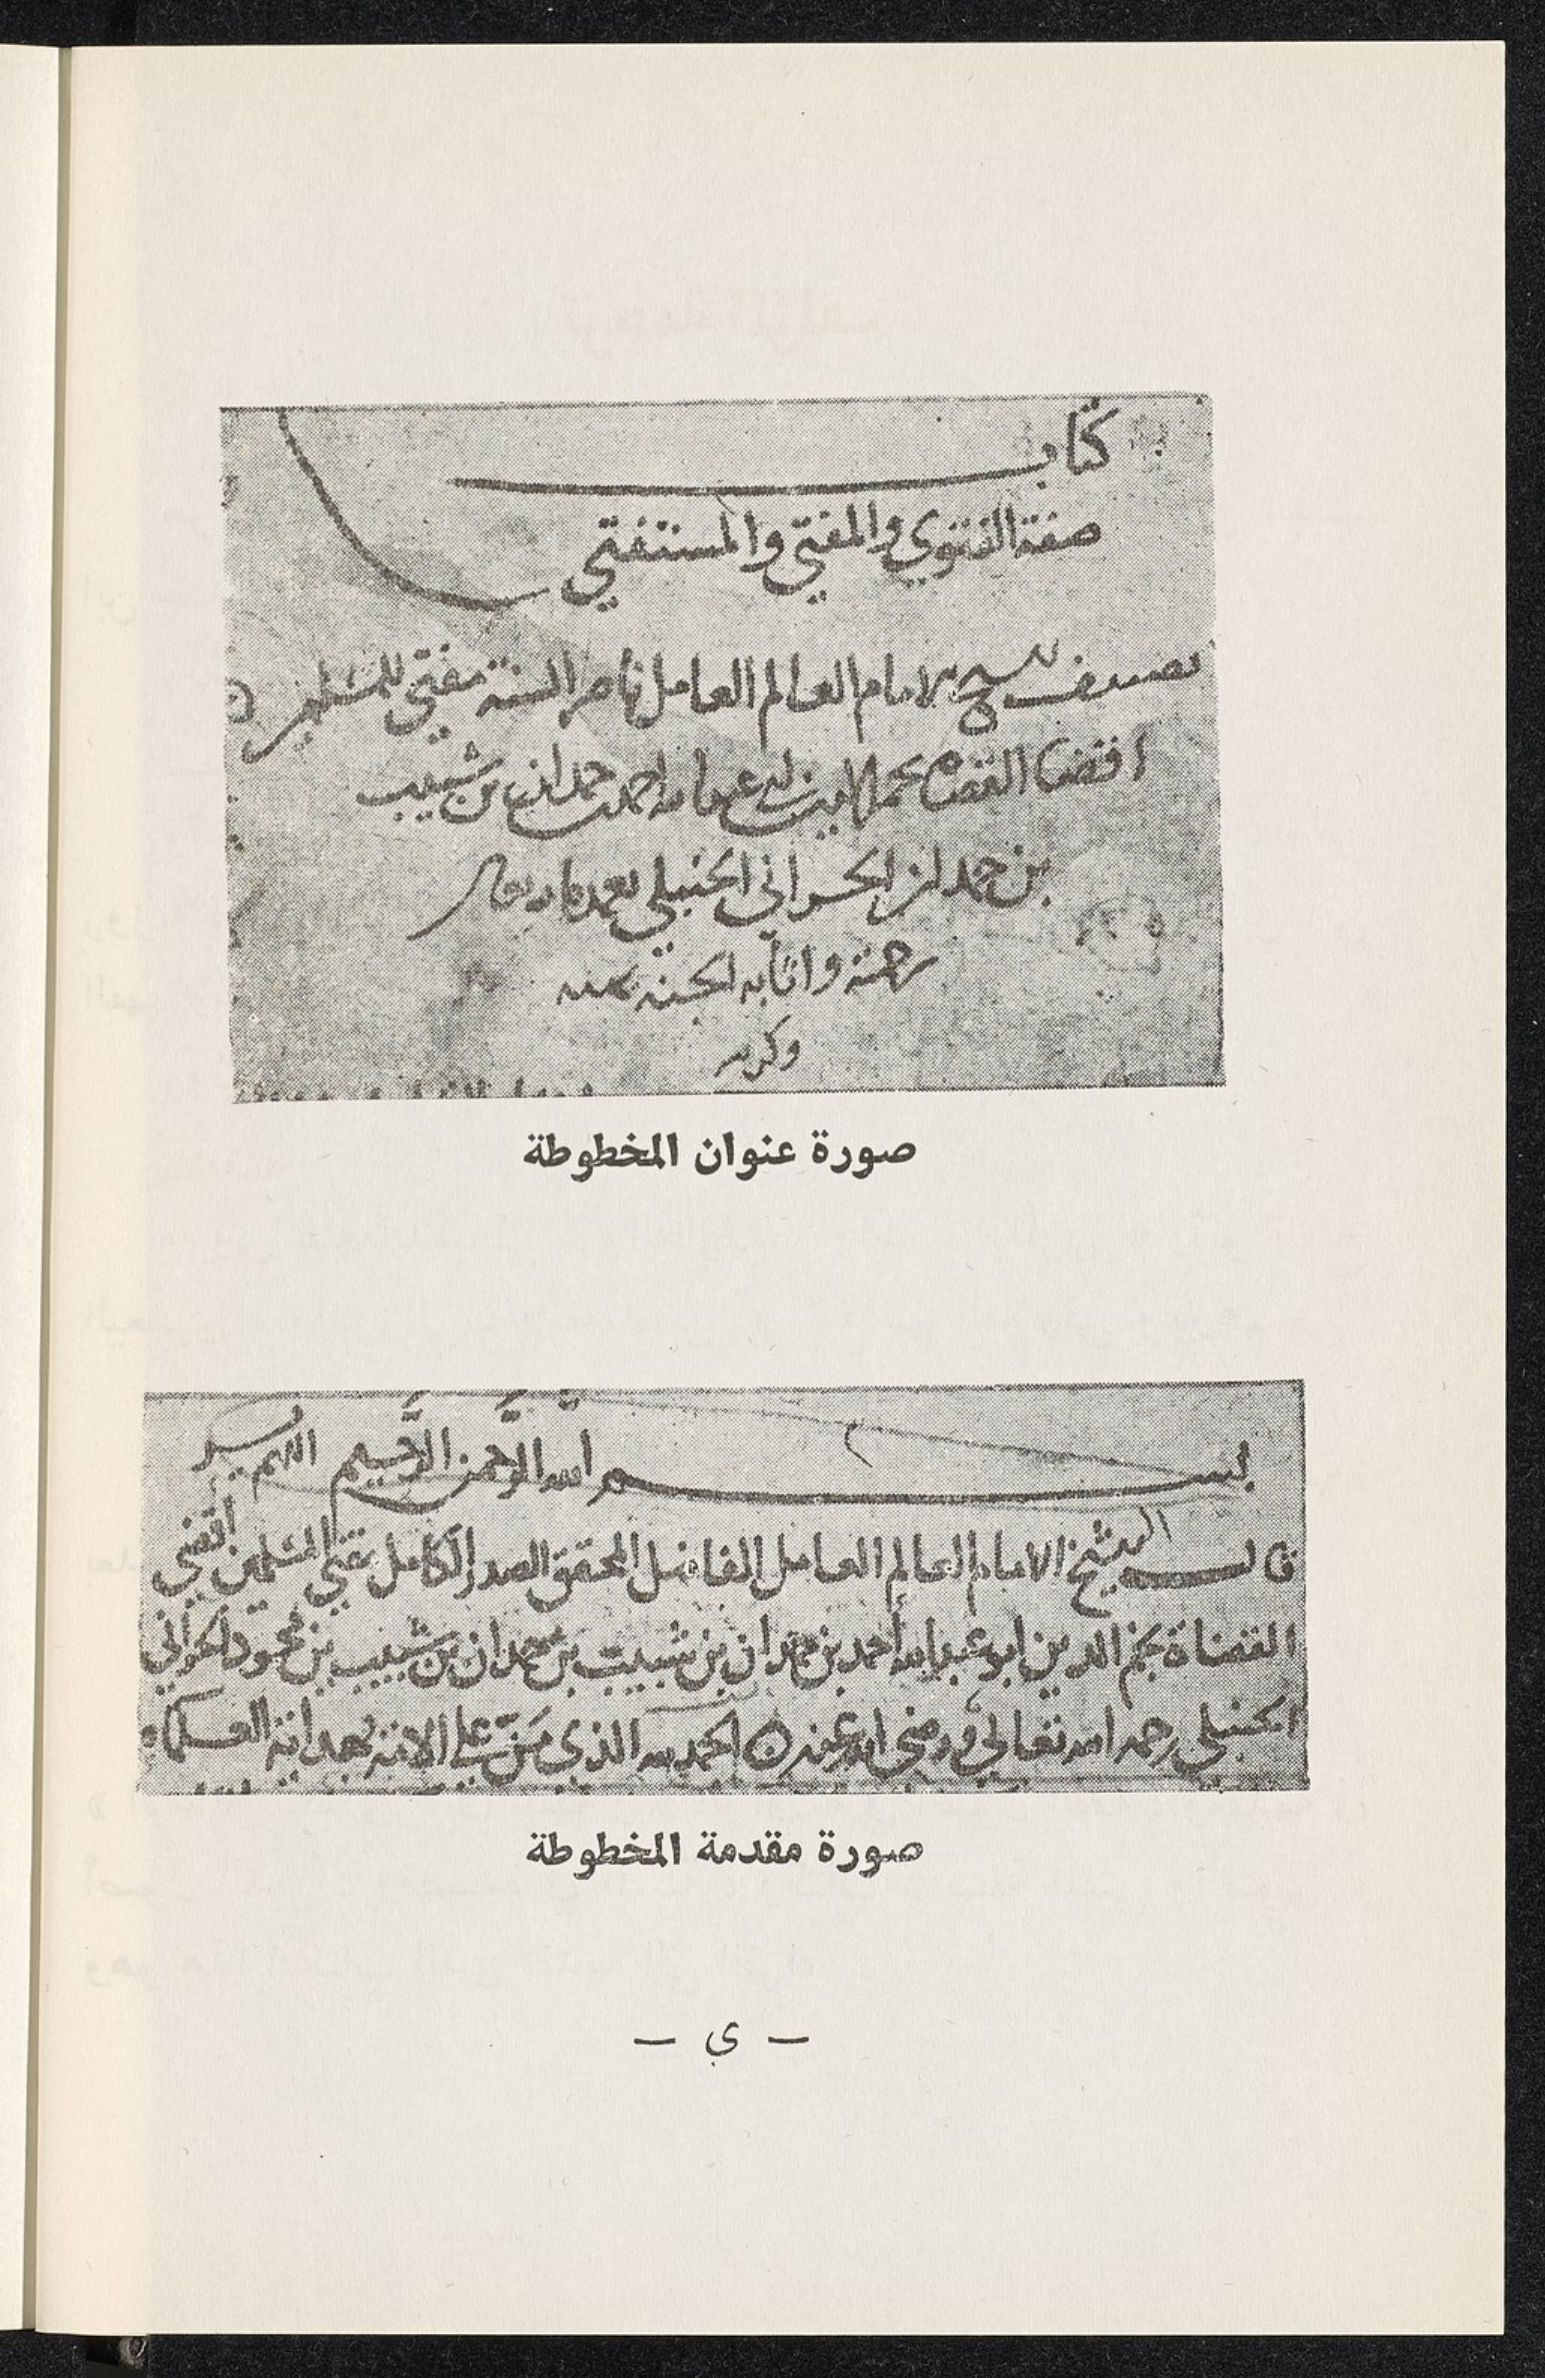 كتاب
صفة الفتوي والمفتي والمستفتي
تصنيف الشيخ الامام العالم العامل ناصر السنة مفتي المسلمين
اقضا القضاه نجم الدين ابي عبد الله احمد بن حمدان بن شبيب
بن حمدان الحراني الحنبلي تغمده الله تعالى
برحمته واثابه الجنة بمنه
وكرمه
صورة عنوان المخطوطة
بسم الله الرحمن الرحيم اللهم يسر
قال الشيخ الامام العالم العامل الفاضل المحقق الصدر الكامل مفتي المسلمين اقضي
القضاة نجم الدين ابو عبد الله أحمد بن حمدان بن شبيب بن حمدان بن شبيب بن محمود الحراني
الحنبلي رحمه الله تعالي ورضي الله عنه الحمد لله الذي مَنّ علي الامة بهداية العلماء
صورة مقدمة المخطوطة
– ي –